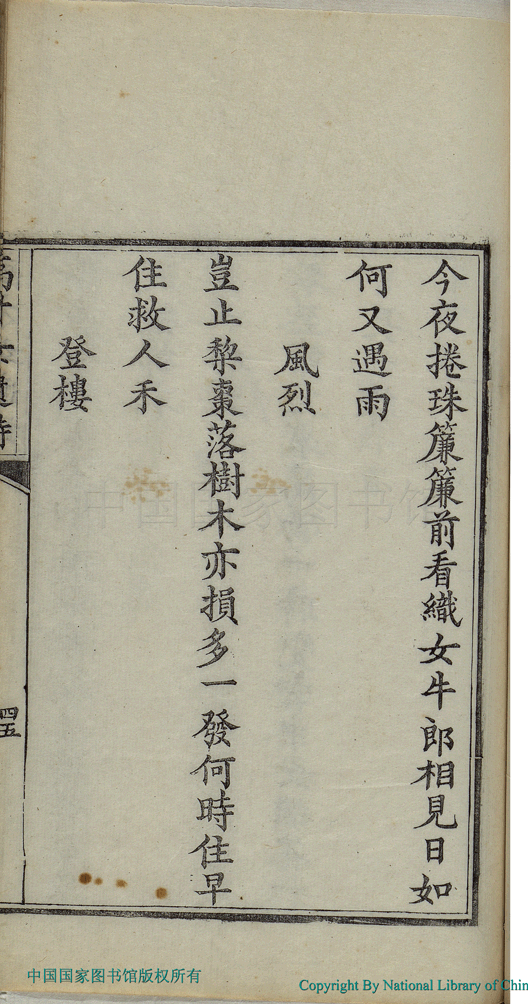 今夜捲珠簾簾前看織女牛郎相見日如
何又遇雨
風烈
豈止黎棗落樹木亦損多一發何時住早
住救人禾
登樓
四五
中国国家图书馆
中国国家图书馆版权所有
Copyright By National Library of Chin